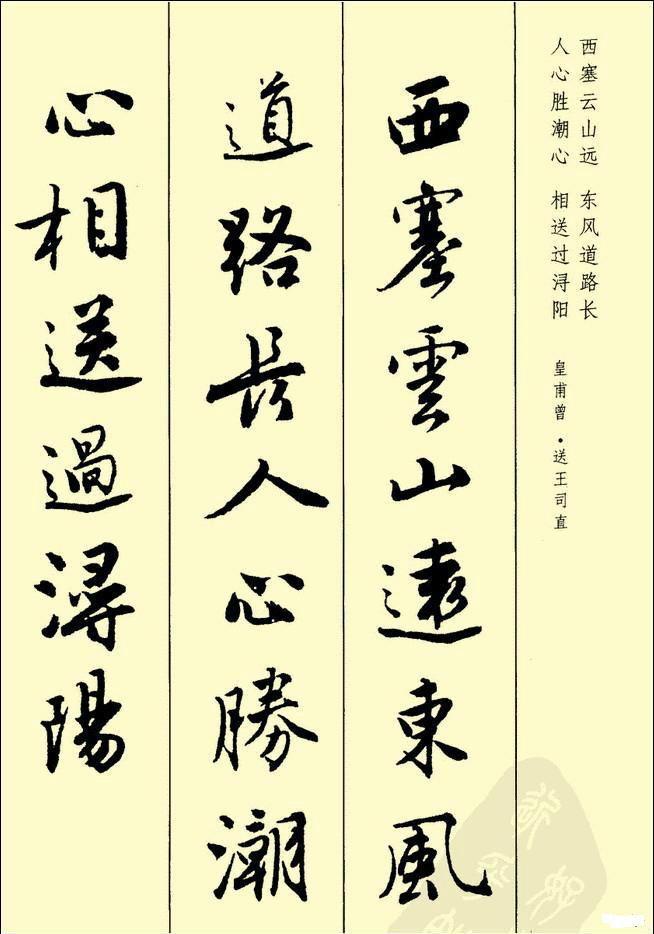 西塞云山远 东风道路长
人心胜潮心 相送过浔阳
皇甫曾·送王司直
西塞雲山遠東風
道路長人心勝潮
心相送過潯陽